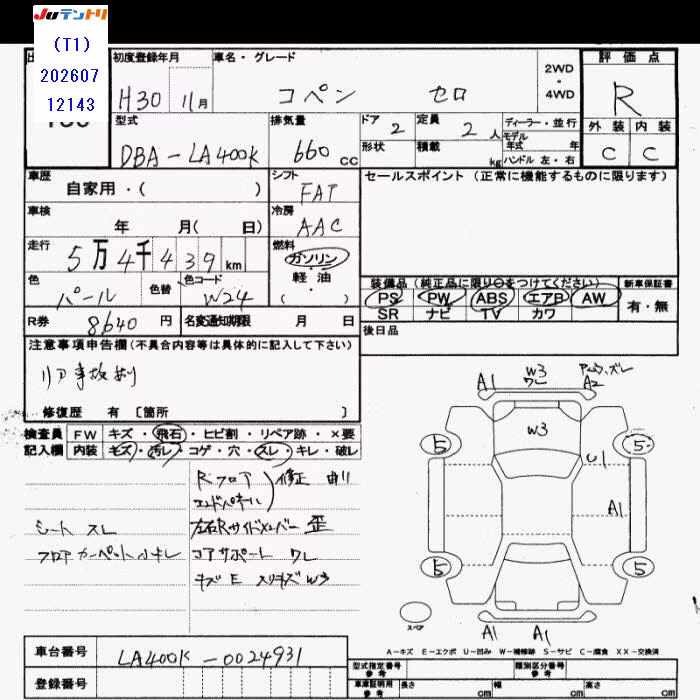 Juテントリ
(T1)
202607
12143
初度登録年月
車名・グレード
2WD
・
4WD
評価点
H30 11月
コペン セロ
R
型式
排気量
ドア
定員
ディーラー・並行
モデル
年式 年
外装 内装
DBA-LA400K
660 cc
2
2 人
形状
積載 kg
ハンドル 左・右
C C
車歴
自家用・( )
シフト
FAT
セールスポイント(正常に機能するものに限ります)
車検
年 月( 日)
冷房
AAC
走行
5万4千439km
燃料
ガソリン
軽・油
( )
色
パール
色替
色コード
W24
装備品(純正品に限り○をつけてください)
新車保証書
PS PW ABS エアB AW
有・無
SR ナビ TV カワ
R券 8640 円
名変通知期限 月 日
後日品
注意事項申告欄(不具合内容等は具体的に記入して下さい)
リア事故あり
修復歴 有 〔箇所 〕
検査員
記入欄
FW キズ・飛石・ヒビ割・リペア跡・×要
内装 キズ・汚レ・コゲ・穴・スレ・キレ・破レ
Rフロア
エンドパネル
修正 曲り
シート スレ
左右Rサイドメンバー 歪
フロアカーペット 小キレ
コアサポート ワレ
キズE スリキズ W3
A1
W3
ワレ
A2
W3
5
5
U1
A1
5
5
スペア
A1
A1
A-キズ E-エクボ U-凹み W-補修跡 S-サビ C-腐食 XX-交換済
車台番号 LA400K-0024931
登録番号
型式指定番号
参考
類別区分番号
参考
車庫証明用
参考
長さ cm
幅 cm
高さ cm